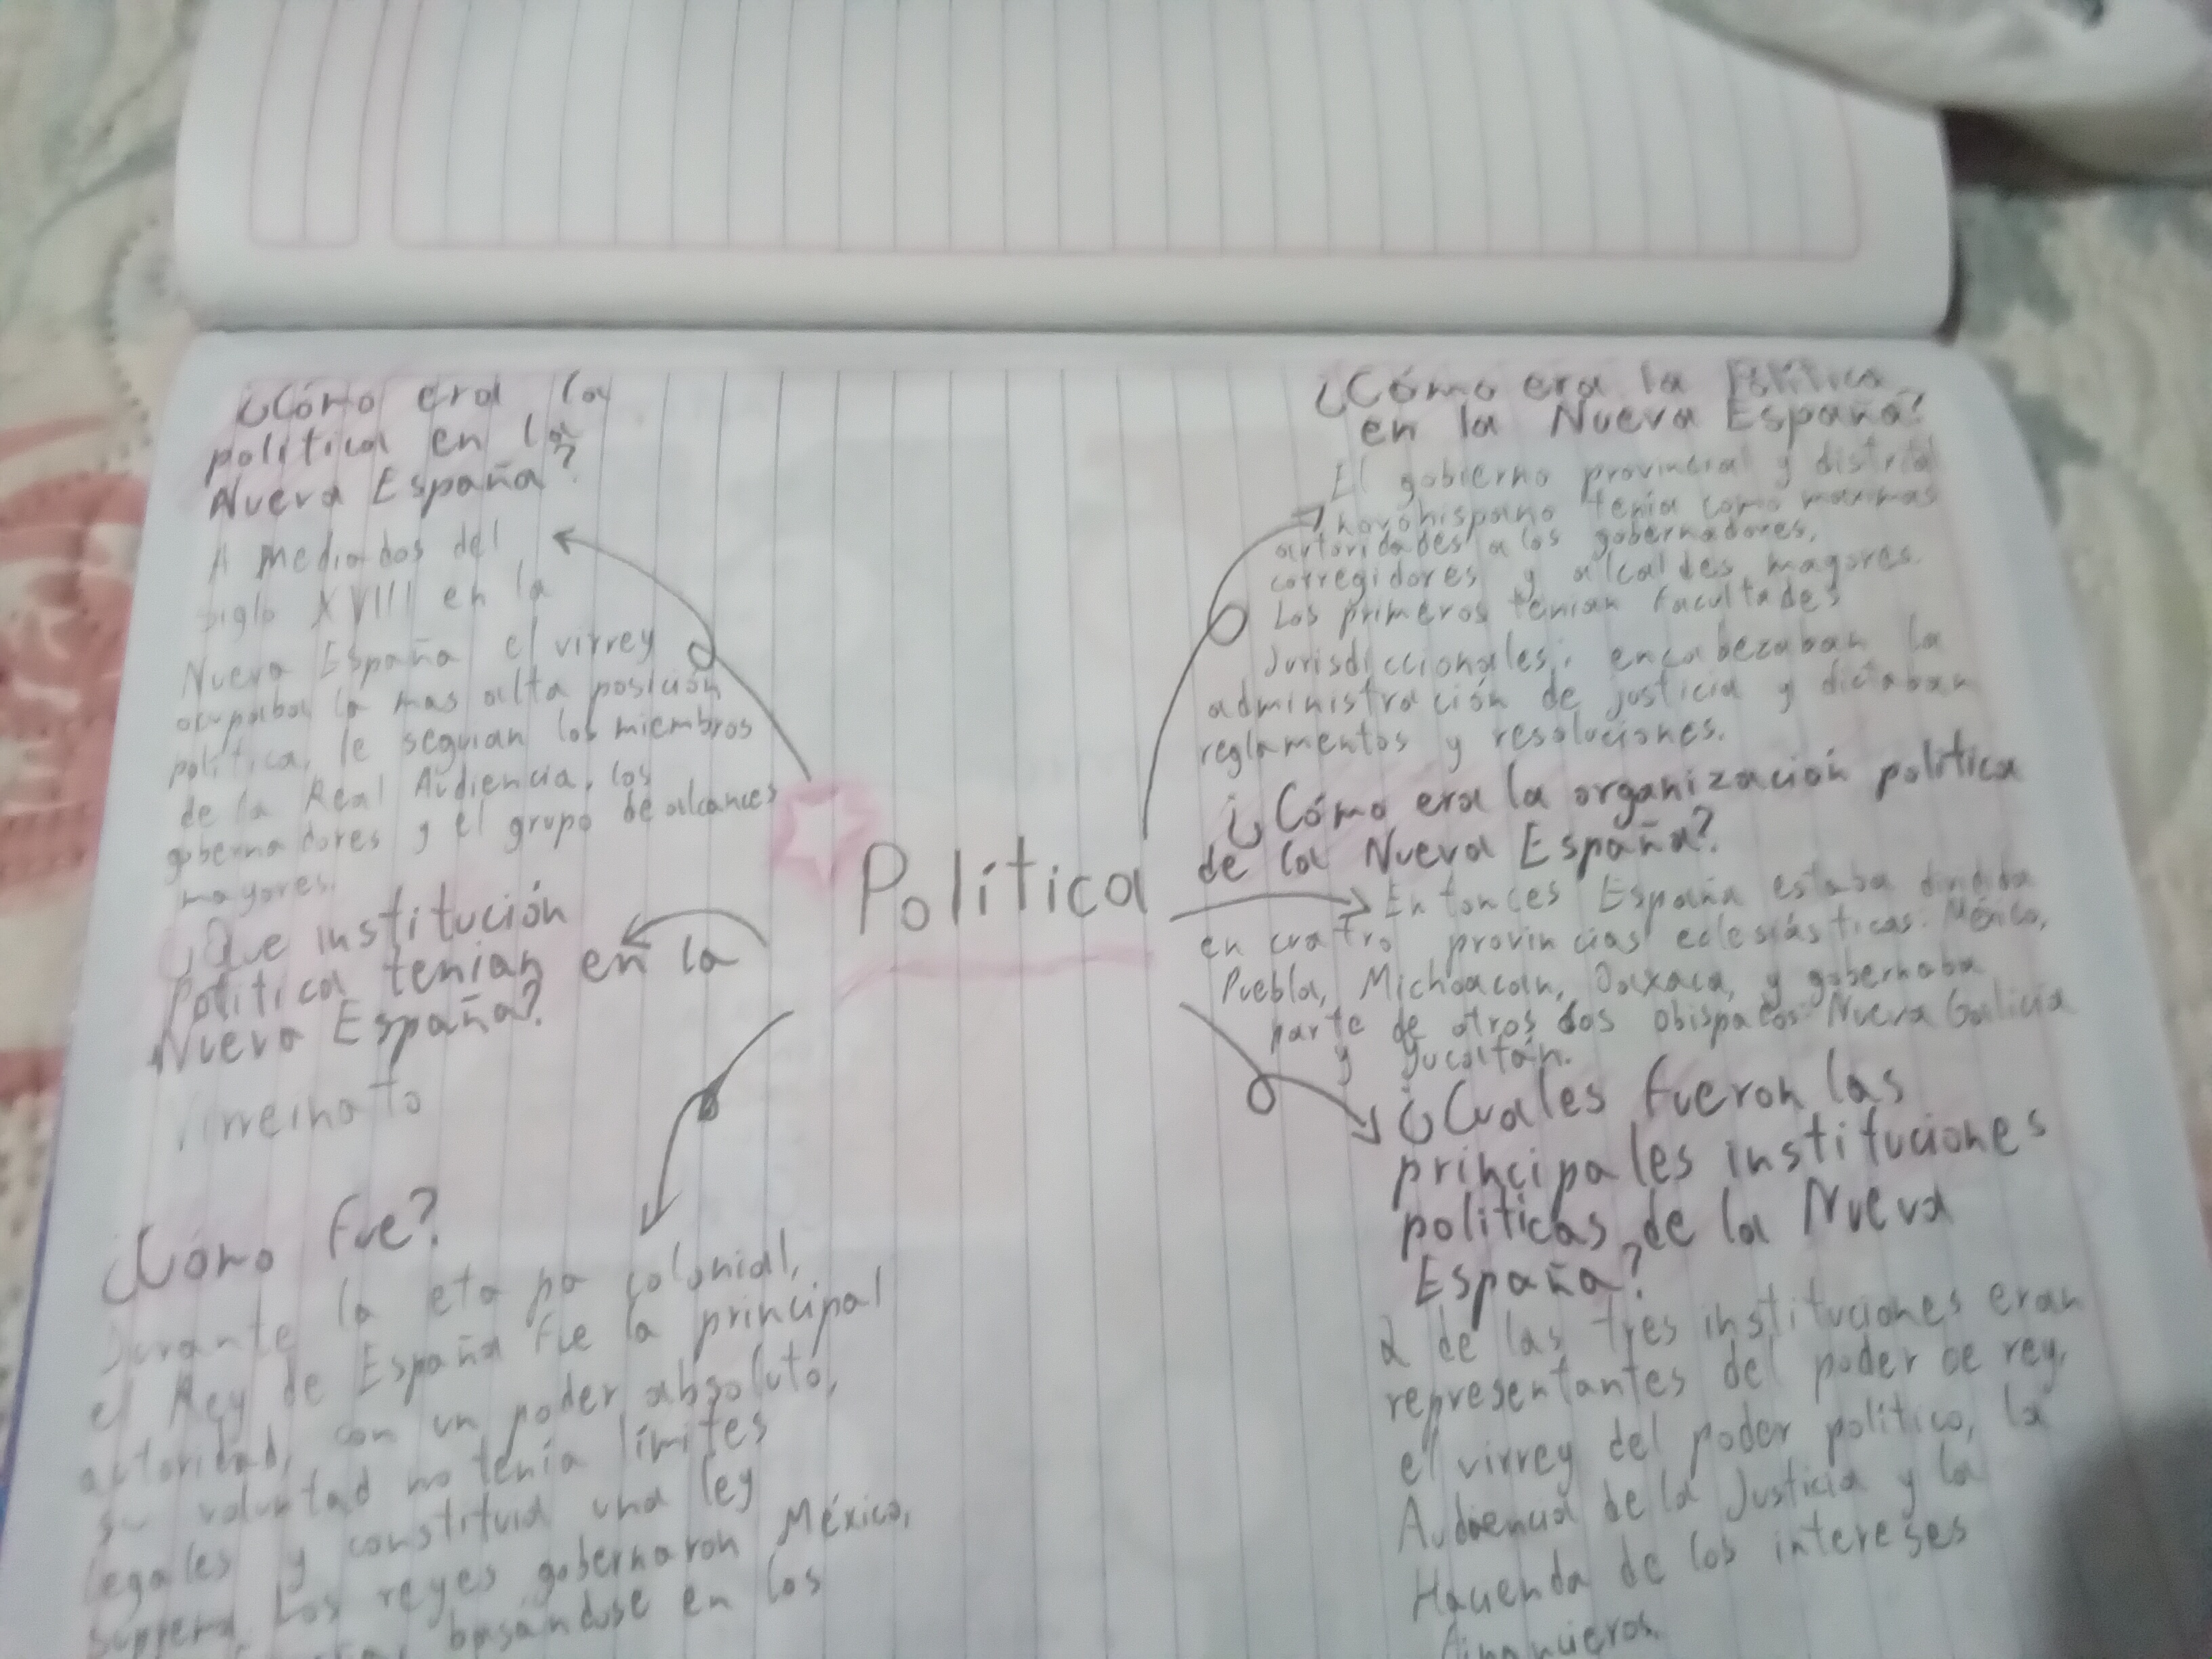 ¿Cómo era la
política en la
Nueva España?
A mediados del
siglo XVIII en la
Nueva España el virrey
ocupaba la mas alta posición
política, le seguian los miembros
de la Real Audiencia, los
gobernadores y el grupo de alcances
mayores.
¿Que institución
Política tenian en la
Nueva España?
Virreinato
¿Cómo fue?
Durante la etapa colonial,
el Rey de España fue la principal
autoridad, con un poder absoluto,
su voluntad no tenía límites
legales y constituía una ley
suprema. Los reyes gobernaron México,
basándose en los
Política
¿Cómo era la Política
en la Nueva España?
El gobierno provincial y distrital
novohispano tenía como maximas
autoridades a los gobernadores,
corregidores y alcaldes mayores.
Los primeros tenian facultades
Jurisdiccionales, encabezaban la
administración de justicia y dictaban
reglamentos y resoluciones.
¿Cómo era la organización política
de la Nueva España?
Entonces España estaba dividida
en cuatro provincias eclesiásticas: México,
Puebla, Michoacan, Oaxaca, y gobernaba
parte de otros dos obispados Nueva Galicia
y Yucatán.
¿Cuales fueron las
principales instituciones
políticas de la Nueva
España?
2 de las tres instituciones eran
representantes del poder de rey,
el virrey del poder político, la
Audiencia de la Justicia y la
Hacienda de los intereses
financieros.